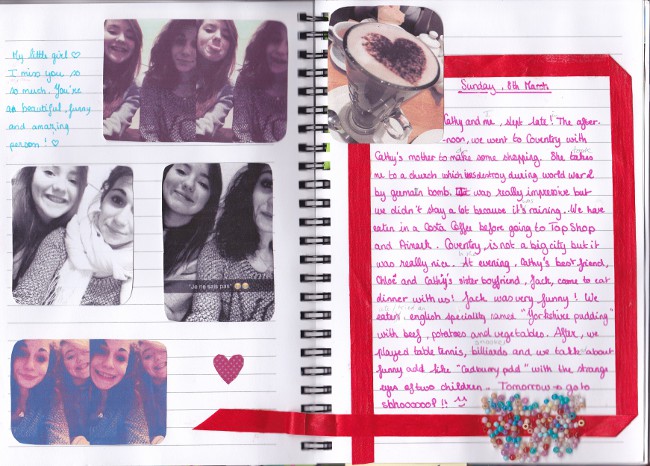 My little girl ♡
I miss you so
so much. You're
so beautiful, funny
and amazing
person ! ♡
"Je ne sais pas" 😂😂
Sunday, 8th March
Cathy and me, slept late! The after-
-noon, we went to Coventry with
Cathy's mother to make some shopping. She takes
me to a church which destroy during world war 2
by germain bomb. It was really impressive but
we didn't stay a lot because it's raining.. We have
eaten in a Costa Coffee before going to Top Shop
and Primark. Coventry, is not a big city but it
was really nice. At evening, Cathy's best friend,
Chloé and Cathy's sister boyfriend, Jack, come to eat
dinner with us! Jack was very funny! We
eaten english speciality named "Yorkshire pudding"
with beef, potatoes and vegetables. After, we
played table tennis, billiards and we talk about
funny add like "Cadbury add" with the strange
eyes of two children.. Tomorrow go to
shhooooool !!